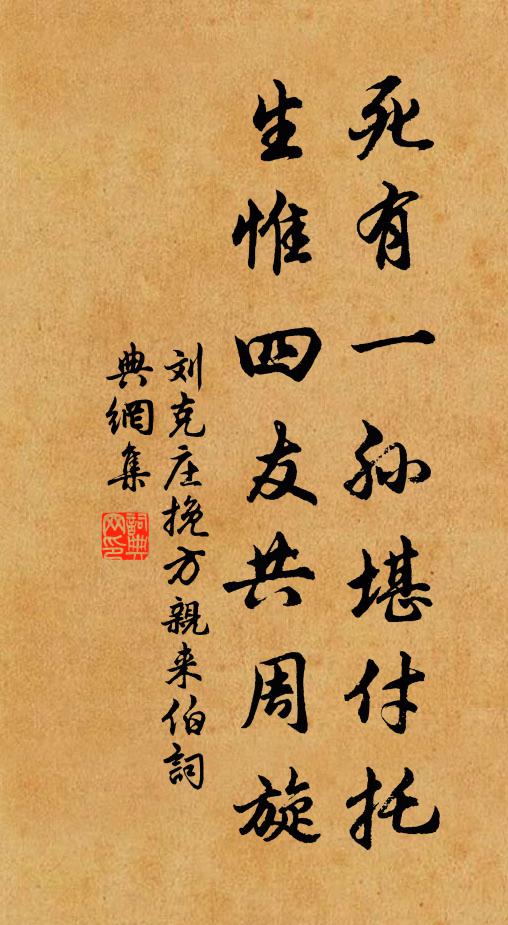 死有一孙堪付托
生惟四友共周旋
刘克庄挽方親来伯詞
典網集
詞典网印